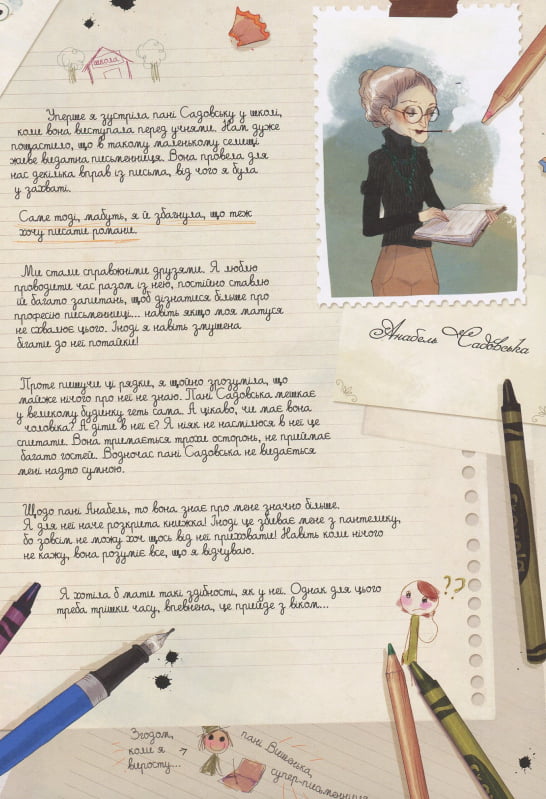 школа
Уперше я зустріла пані Садовську у школі,
коли вона виступала перед учнями. Нам дуже
пощастило, що в такому маленькому селищі
живе видатна письменниця. Вона провела для
нас декілька вправ із письма, від чого я була
у захваті.
Саме тоді, мабуть, я й збагнула, що теж
хочу писати романи.
Ми стали справжніми друзями. Я люблю
проводити час разом із нею, постійно ставлю
їй багато запитань, щоб дізнатися більше про
професію письменниці... навіть якщо моя матуся
не схвалює цього. Іноді я навіть змушена
бігати до неї потайки!
Анабель Садовська
Проте пишучи ці рядки, я щойно зрозуміла, що
майже нічого про неї не знаю. Пані Садовська мешкає
у великому будинку геть сама. А цікаво, чи має вона
чоловіка? А діти в неї є? Я ніяк не насмілюся в неї це
спитати. Вона тримається трохи осторонь, не приймає
багато гостей. Водночас пані Садовська не видається
мені надто сумною.
Щодо пані Анабель, то вона знає про мене значно більше.
Я для неї наче розкрита книжка! Іноді це збиває мене з пантелику,
бо зовсім не можу хоч щось від неї приховати! Навіть коли нічого
не кажу, вона розуміє все, що я відчуваю.
Я хотіла б мати такі здібності, як у неї. Однак для цього
треба трішки часу, впевнена, це прийде з віком...
??
Згодом,
коли я
виросту...
пані Вишенська,
супер-письменниця